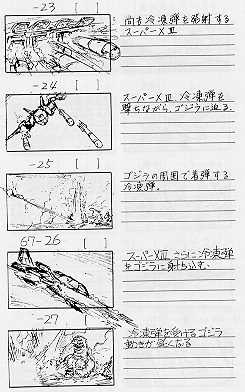 -23 [ ]
尚も冷凍弾を発射する
スーパーXⅢ
-24 [ ]
スーパーXⅢ 冷凍弾を
撃ちながら、ゴジラに迫る。
-25 [ ]
ゴジラの周囲で着弾する
冷凍弾。
67-26 [ ]
スーパーXⅢ さらに冷凍弾
をゴジラに射ち込む
-27 [ ]
冷凍弾を受けるゴジラ
動きが鈍くなる